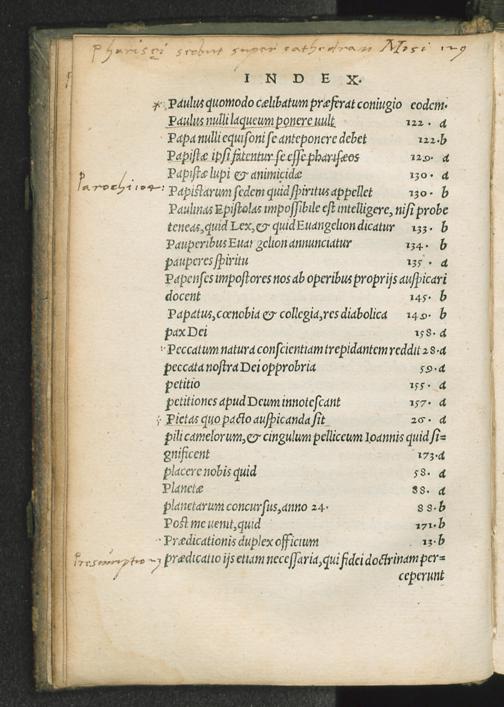 Pharisęi sedent super cathedram Mosi 129
INDEX.
Paulus quomodo cælibatum præferat coniugio eodem.
Paulus nulli laqueum ponere uult 122. a
Papa nulli equisoni se anteponere debet 122.b
Papistæ ipsi fatentur se esse pharisæos 129. a
Papistæ lupi & animicidæ 130. a
Parochi 104:
Papistarum sedem quid spiritus appellet 130. b
Paulinas Epistolas impossibile est intelligere, nisi probe
teneas, quid Lex, & quid Euangelion dicatur 133. b
Pauperibus Euangelion annunciatur 134. b
pauperes spiritu 135. a
Papenses impostores nos ab operibus proprijs auspicari
docent 145. b
Papatus, cœnobia & collegia, res diabolica 149. b
pax Dei 158. a
Peccatum natura conscientiam trepidantem reddit 28.a
peccata nostra Dei opprobria 59.a
petitio 155. a
petitiones apud Deum innotescant 157. a
Pietas quo pacto auspicanda sit 26. a
pili camelorum, & cingulum pelliceum Ioannis quid si=
gnificent 173.a
placere nobis quid 58. a
Planetæ 88. a
planetarum concursus, anno 24. 88.b
Post me uenit, quid 171.b
Prædicationis duplex officium 13.b
prædicatio ijs etiam necessaria, qui fidei doctrinam per=
ceperunt